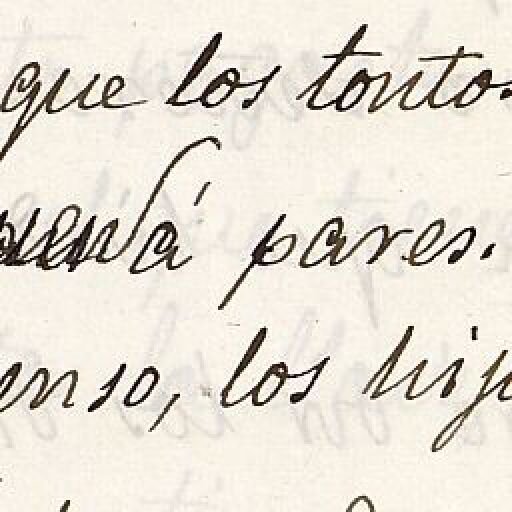 que los tontos
á pares.
enso, los hijo